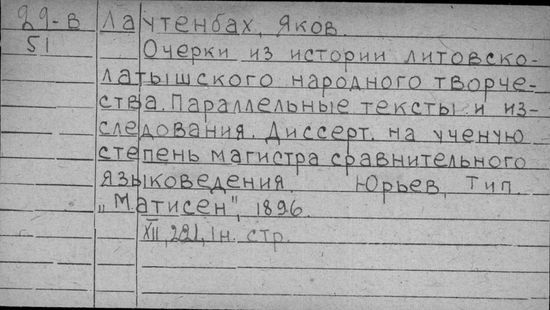 29-в Лаутенбах, Яков.
51 Очерки из истории литовско-
латышского народного творче-
ства. Параллельные тексты и из-
следования. Диссерт. на ученую
степень магистра сравнительного
языковедения. Юрьев, Тип.
„Матисен", 1896.
XII, 221, 1 н. стр.